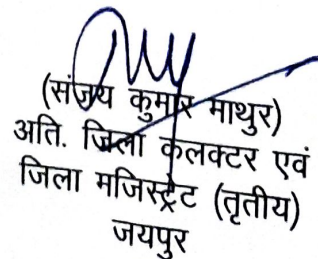 (संजय कुमार माथुर)
अति. जिला कलक्टर एवं
जिला मजिस्ट्रेट (तृतीय)
जयपुर